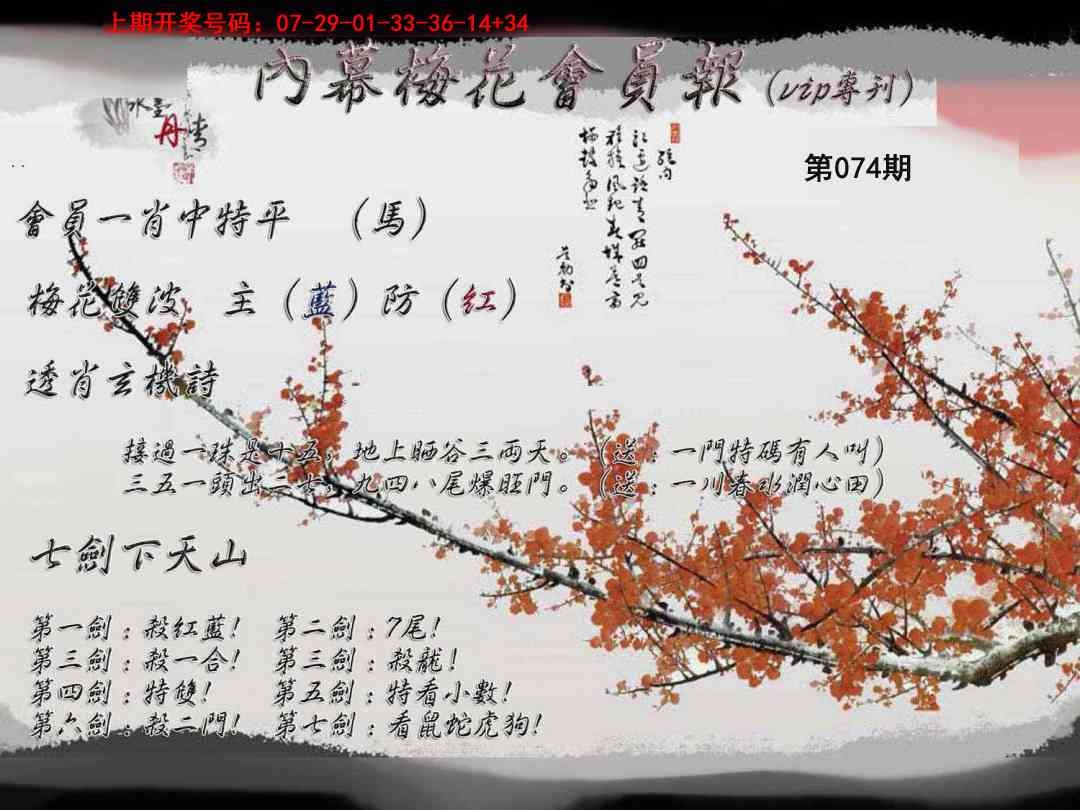 上期开奖号码：07-29-01-33-36-14+34
內幕梅花會員報（vip專刊）
水墨
丹青
第074期
會員一肖中特平 （馬）
梅花雙波 主（藍）防（紅）
透肖玄機詩
接過一珠是十五，地上晒谷三兩天。（送：一門特碼有人叫）
三五一頭出二七，九四八尾爆旺門。（送：一川春水潤心田）
七劍下天山
第一劍：殺紅藍！ 第二劍：7尾！
第三劍：殺一合！ 第三劍：殺龍！
第四劍：特雙！ 第五劍：特看小數！
第六劍：殺二門！ 第七劍：看鼠蛇虎狗！